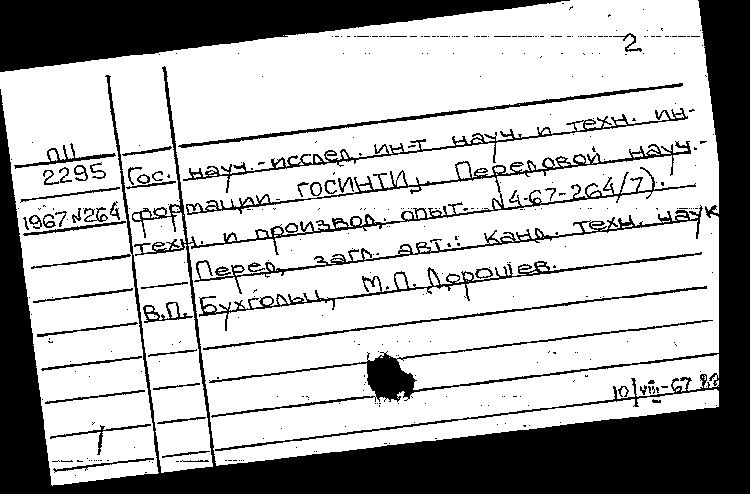 2
П11
2295 Гос. науч.-исслед. ин-т науч. и техн. ин-
1967 №264 формации ГОСИНТИ". Передовой науч.-
техн. и производ. опыт. №4-67-264/7).
Перед. загл. авт.: канд. техн. наук
В.П. Бухгольц, М.П. Дорошев.
10/VIII-67